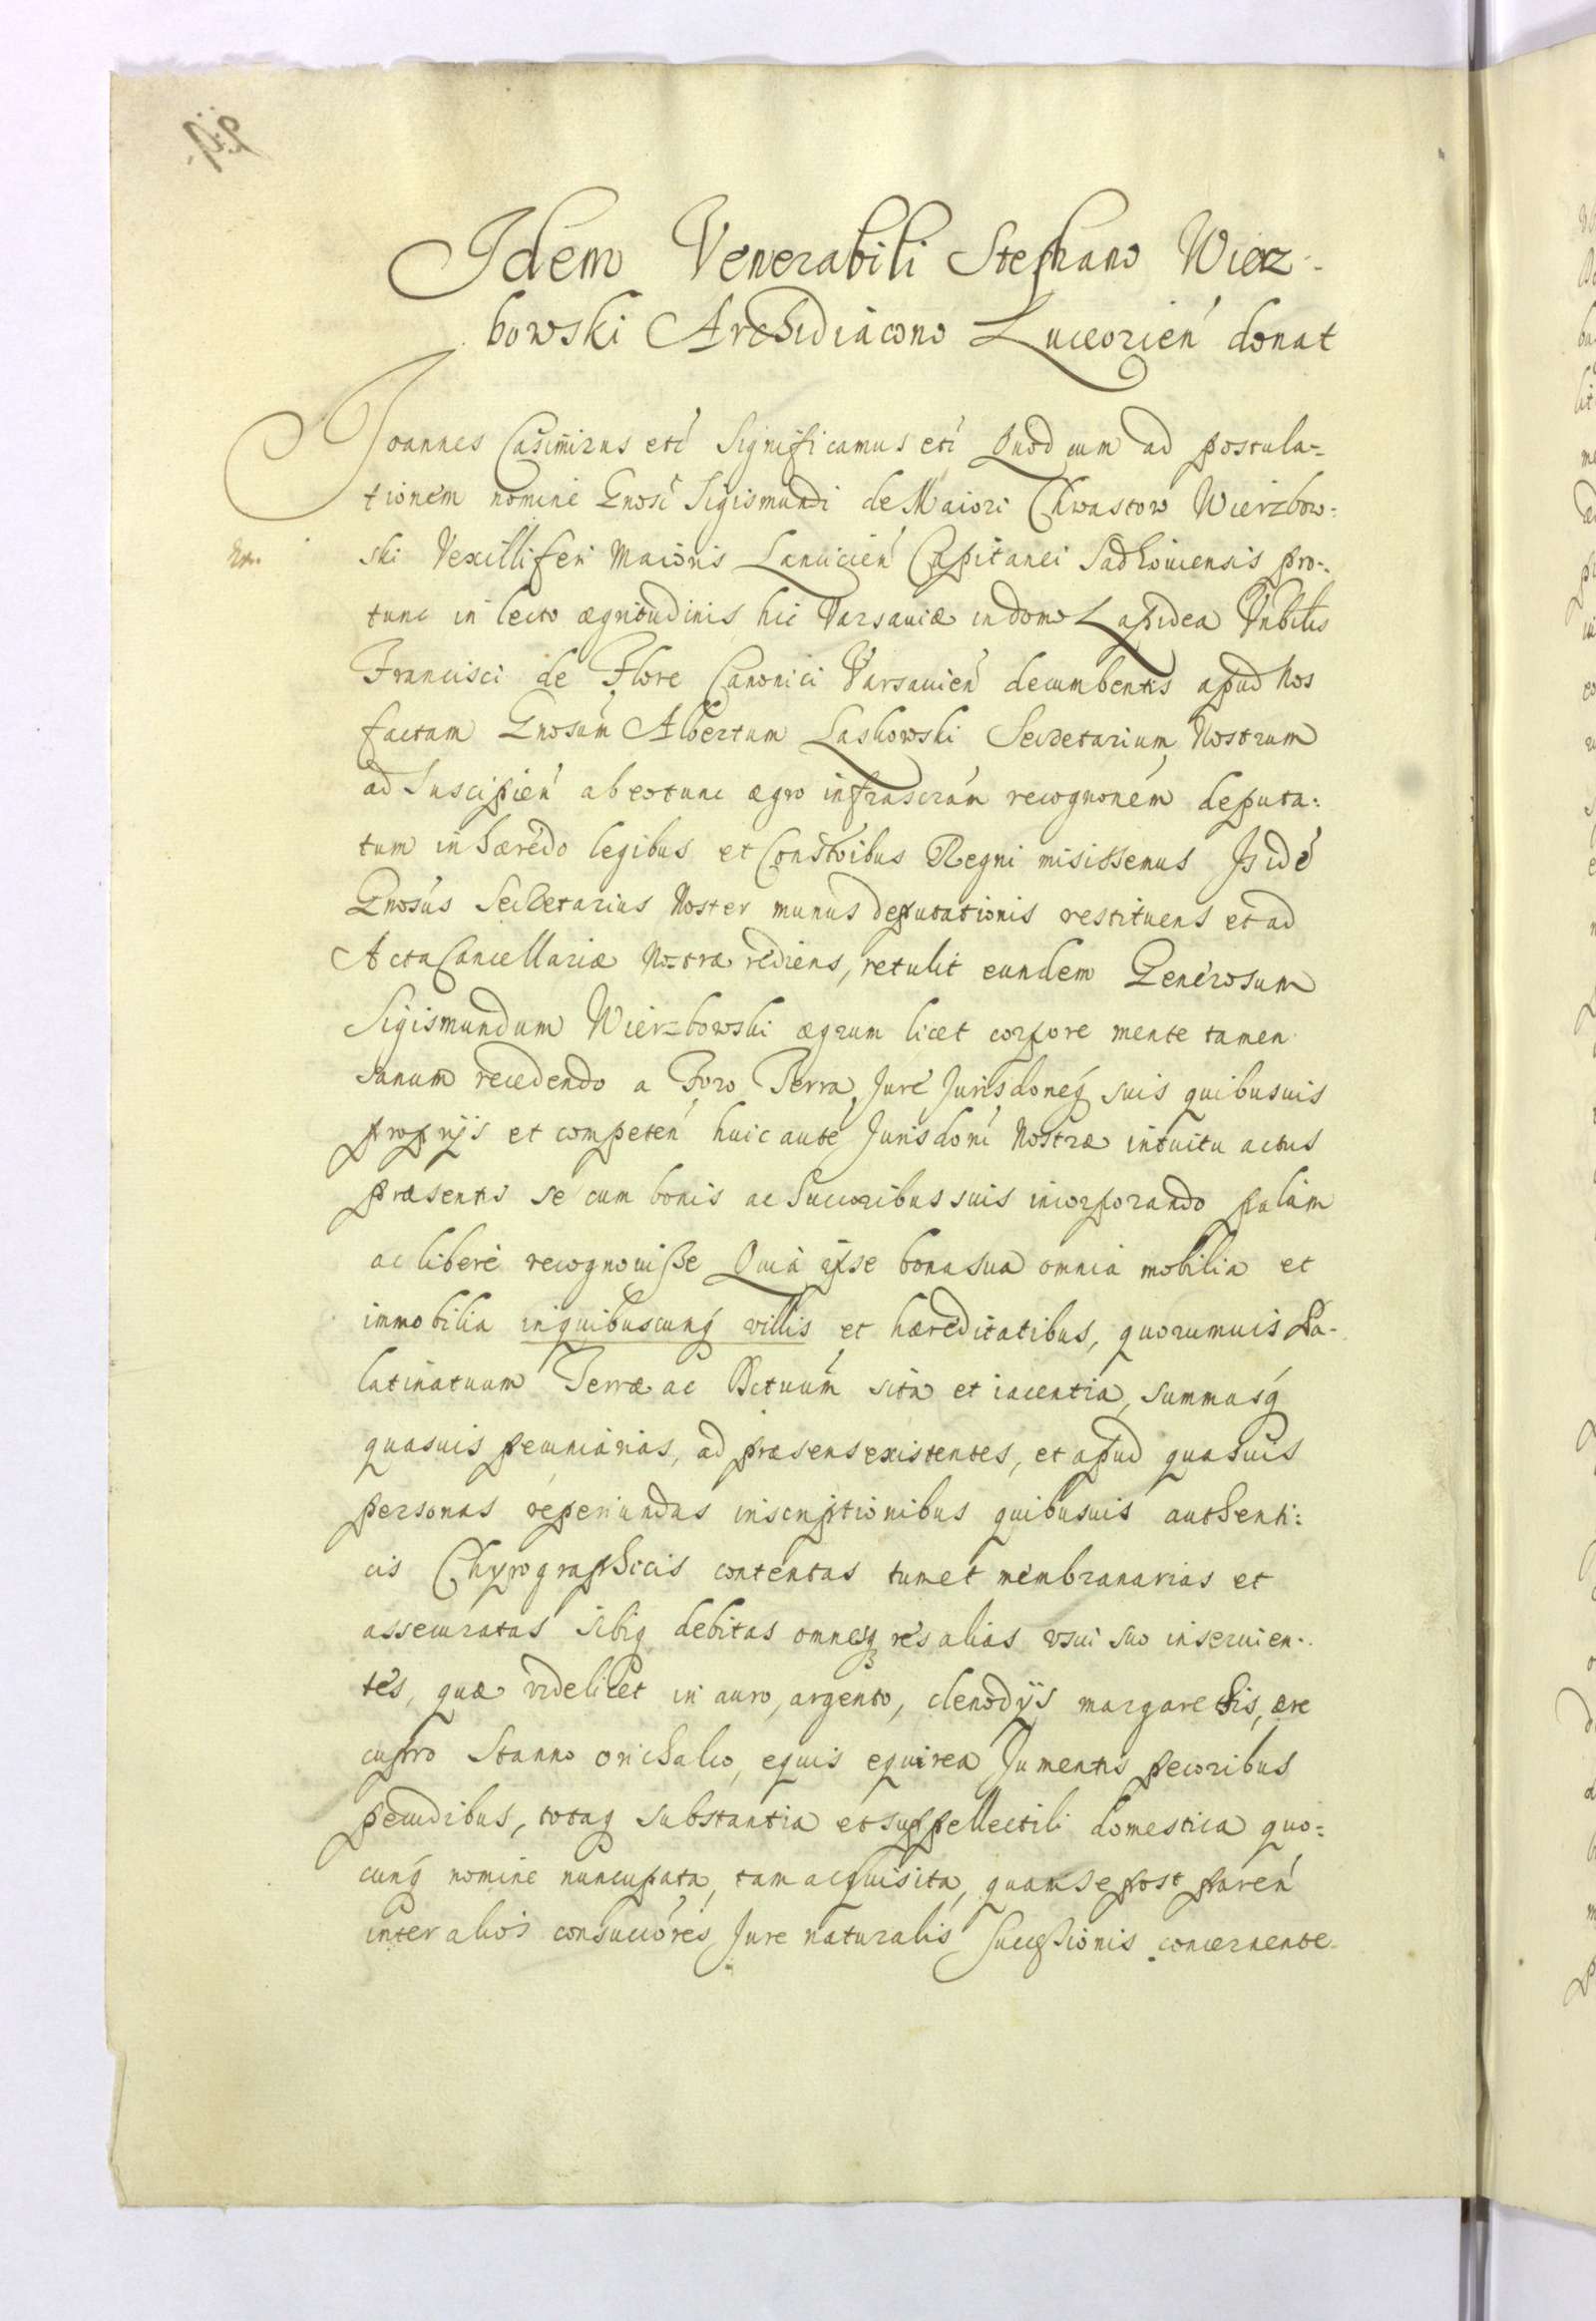 Idem Venerabili Stephano Wierz-
bowski Archidiacono Luceorien donat
Joannes Casimirus etc Significamus etc Quod cum ad postula-
tionem nomine Gnosi Sigismundi de Maiori Chwastow Wierzbow-
ski Vexilliferi Maioris Lancicien Capitanei Sadloviensis pro-
tunc in lecto ægritudinis hic Varsaviæ in domo Lapidea Vnbilis
Francisci de Flore Canonici Varsavien decumbentis apud Nos
factam Gnosum Albertum Laskowski Secretarium Nostrum
ad suscipien ab eotunc ægro infrascram recognonem deputa-
tum inhærendo legibus et Constoibus Regni misissemus Is ide
Gnosus Secretarius Noster munus deputationis restituens et ad
Acta Cancellariæ Nostræ rediens, retulit eundem Generosum
Sigismundum Wierzbowski ægrum licet corpore mente tamen
sanum recedendo a Foro Terra, Jure Jurisdoneq suis quibusvis
proprijs et competen huic aute Jurisdoni Nostræ intuitu actus
præsentis se cum bonis ac succoribus suis incorporando palàm
ac liberè recognovisse Quià ipse bona sua omnia mobilia et
immobilia inquibuscunq villis et hæreditatibus, quorumvis Pa-
latinatuum Terræ ac Dictuum sita et iacentia, summasq
quasvis pecuniarias, ad præsens existentes, et apud quasvis
personas reperiundas inscriptionibus quibusvis authenti-
cis Chyrographicis contentas tumet membranarias et
assecuratas sibiq debitas omnesq res alias vsui suo inservien-
tes, quæ videlicet in auro, argento, clenodijs margarethis, ære
cupro Stanno orichalco, equis equirea Jumentis pecoribus
pecudibus, totaq substantia et suppellectili domestica quo-
cunq nomine nuncupata, tam acquisita, quam se post paren
inter alios consuccores Jure naturalis successionis concernente